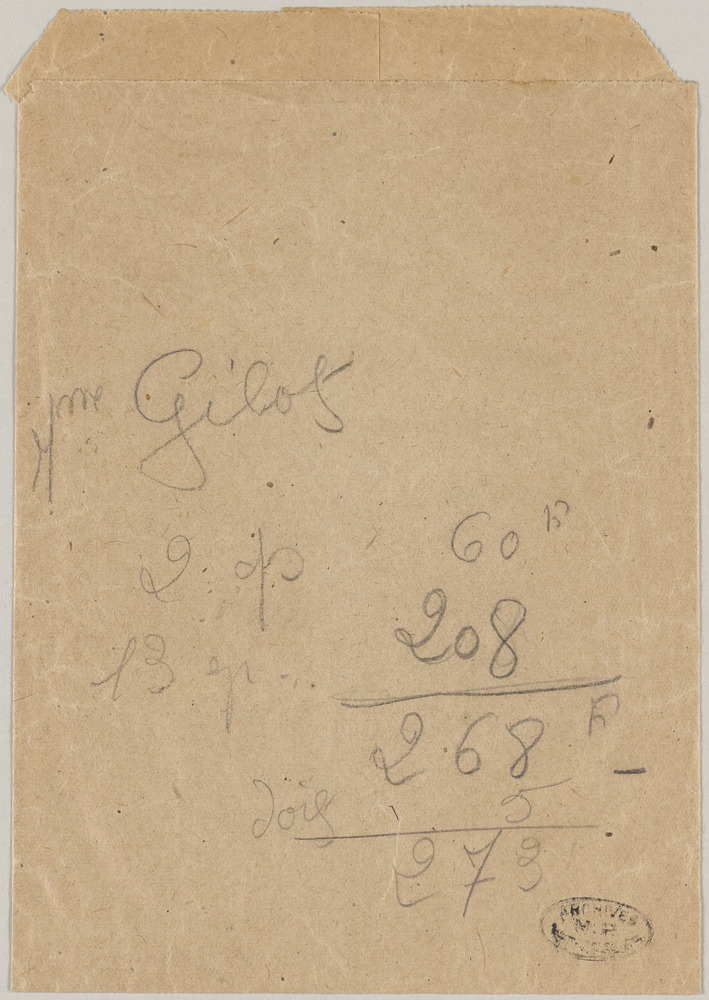 Mme Gilot
2 p 60 F
208
13 p.
268 F
dois 5
273
ARCHIVES
M.P